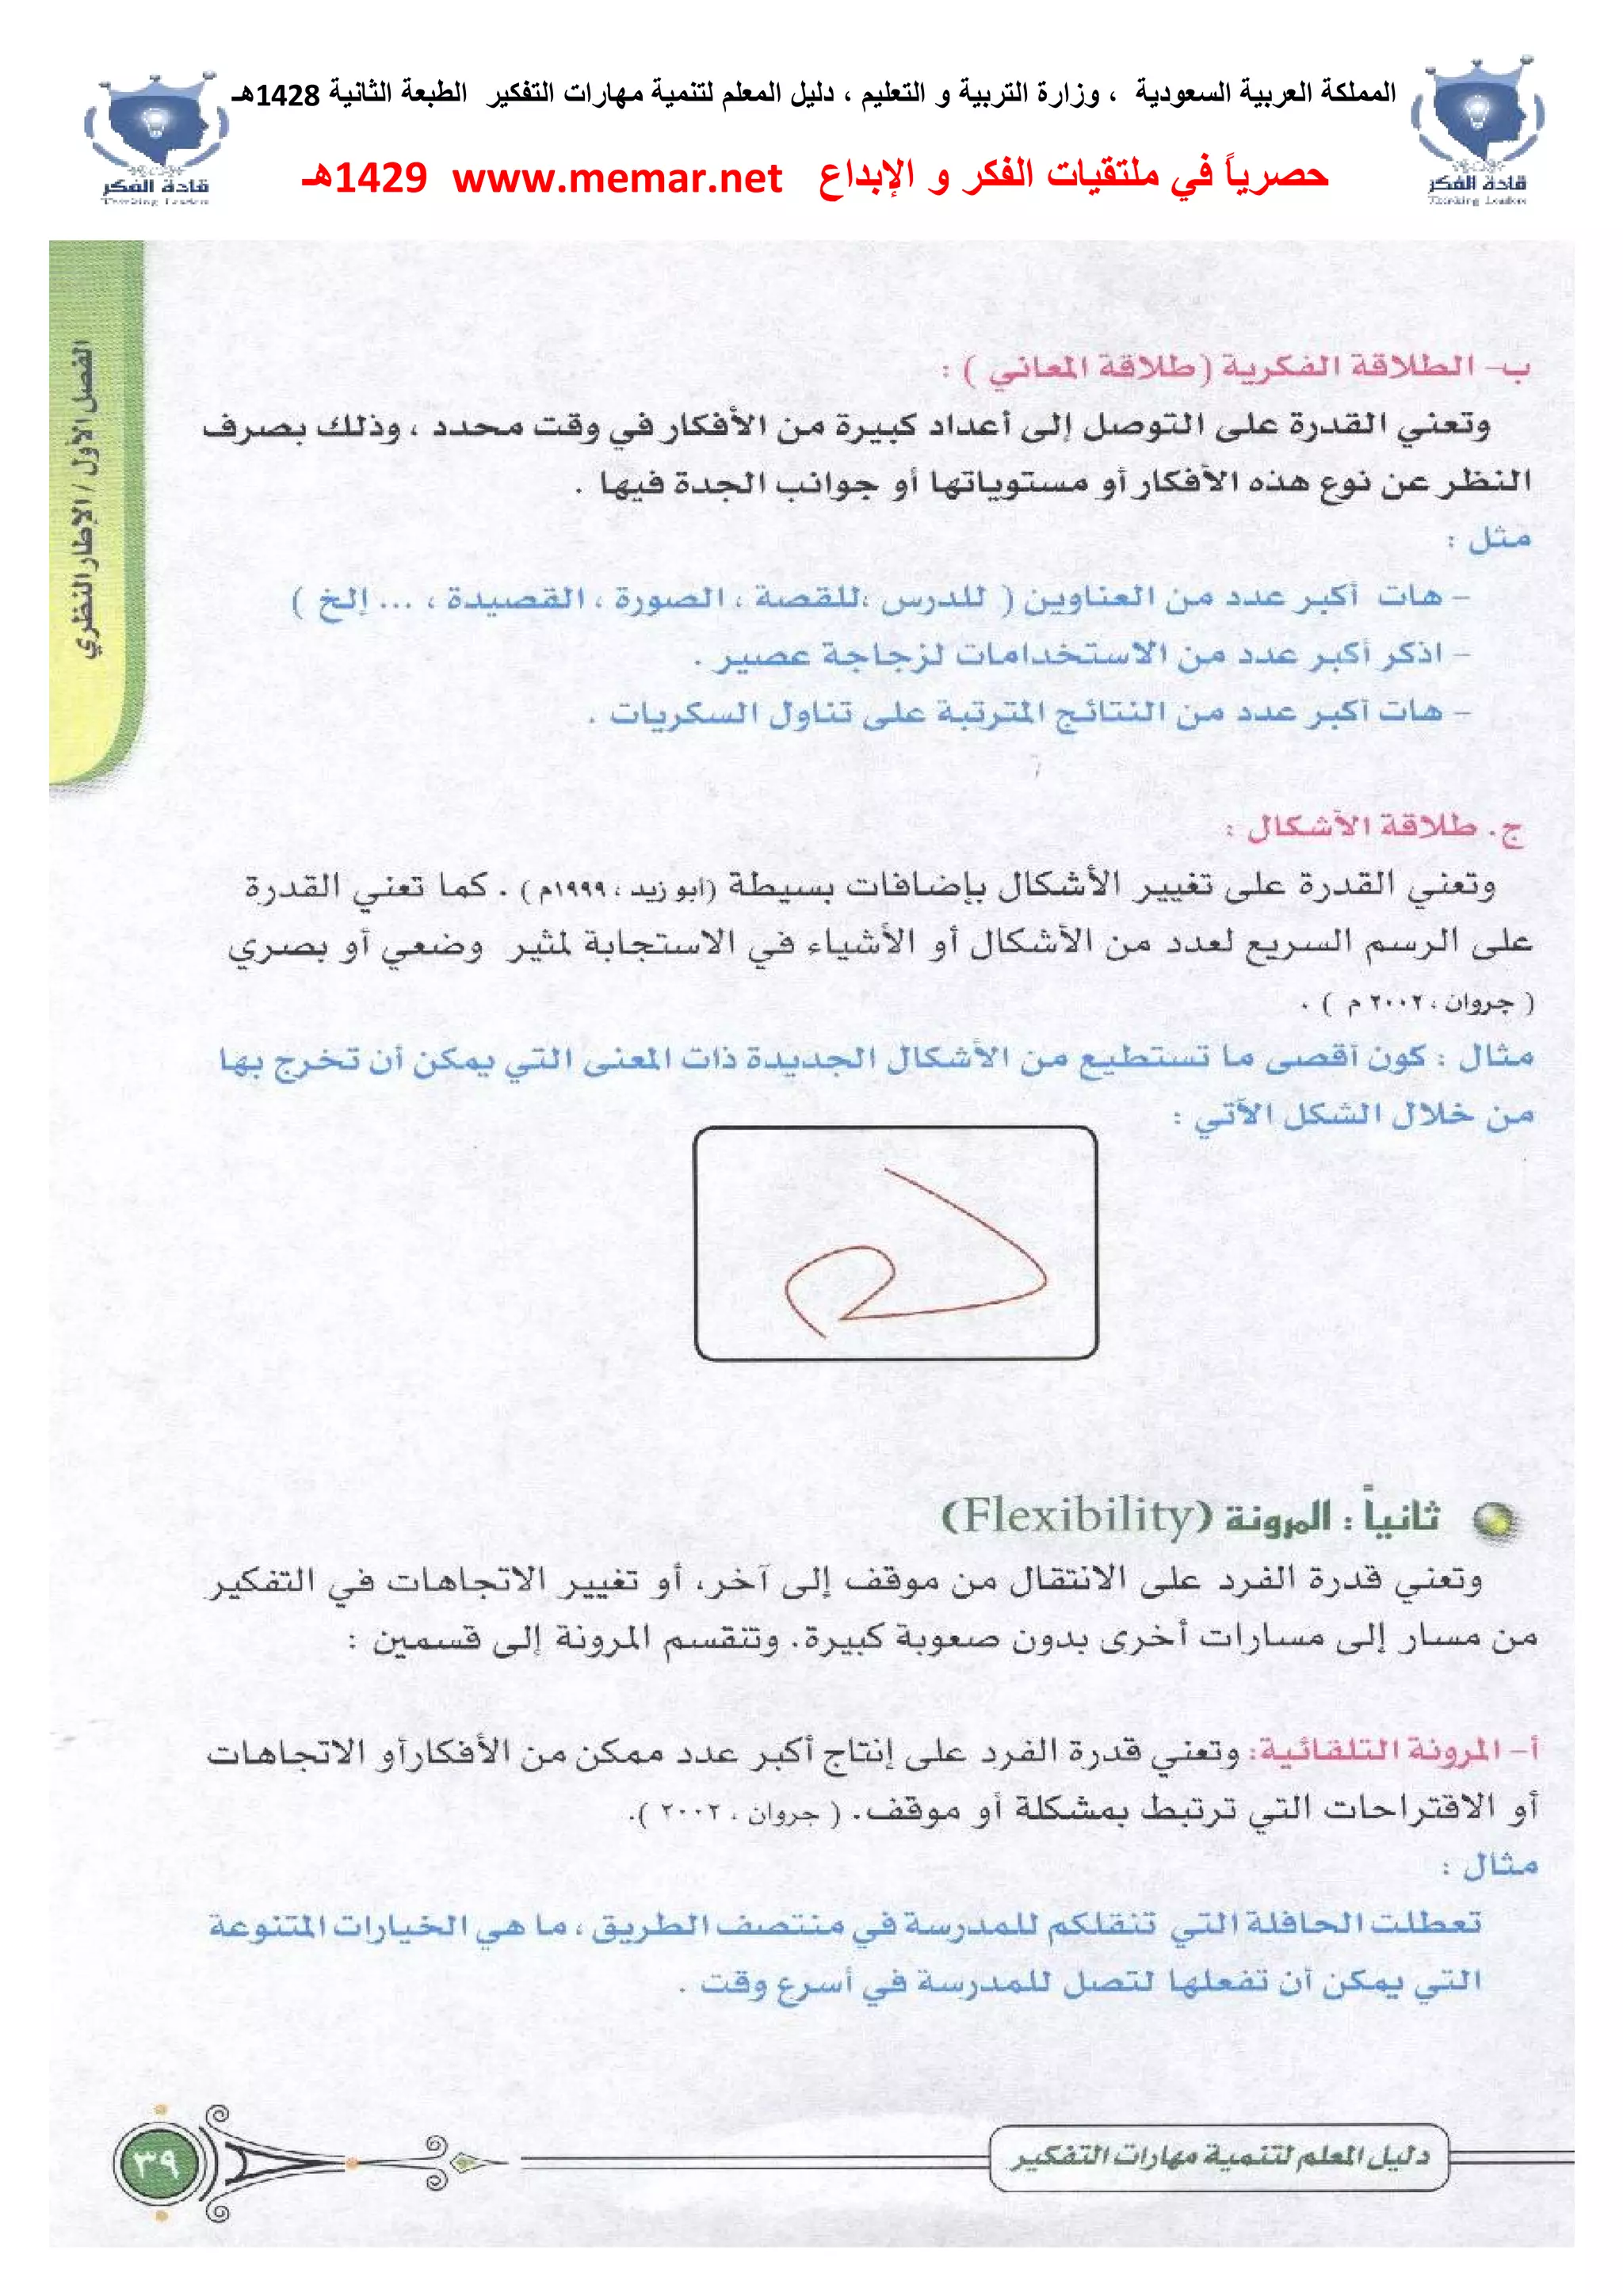 المملكة العربية السعودية ، وزارة التربية و التعليم ، دليل المعلم لتنمية مهارات التفكير الطبعة الثانية 1428هـ
حصرياً في ملتقيات الفكر و الإبداع www.memar.net 1429هـ
قادة الفكر
Thinking Leaders
قادة الفكر
Thinking Leaders
الفصل الأول / الإطار النظري
ب- الطلاقة الفكرية (طلاقة المعاني ) :
وتعني القدرة على التوصل إلى أعداد كبيرة من الأفكار في وقت محدد ، وذلك بصرف
النظر عن نوع هذه الأفكار أو مستوياتها أو جوانب الجدة فيها .
مثل :
- هات أكبر عدد من العناوين ( للدرس ،للقصة ، الصورة ، القصيدة ، ... إلخ )
- اذكر أكبر عدد من الاستخدامات لزجاجة عصير .
- هات أكبر عدد من النتائج المترتبة على تناول السكريات .
ج. طلاقة الأشكال :
وتعني القدرة على تغيير الأشكال بإضافات بسيطة (أبو زيد ، ١٩٩٩م ) . كما تعني القدرة
على الرسم السريع لعدد من الأشكال أو الأشياء في الاستجابة لمثير وضعي أو بصري
( جروان ، ٢٠٠٢ م ) .
مثال : كون أقصى ما تستطيع من الأشكال الجديدة ذات المعنى التي يمكن أن تخرج بها
من خلال الشكل الآتي :
ثانياً : المرونة (Flexibility)
وتعني قدرة الفرد على الانتقال من موقف إلى آخر، أو تغيير الاتجاهات في التفكير
من مسار إلى مسارات أخرى بدون صعوبة كبيرة. وتنقسم المرونة إلى قسمين :
أ- المرونة التلقائية: وتعني قدرة الفرد على إنتاج أكبر عدد ممكن من الأفكار أو الاتجاهات
أو الاقتراحات التي ترتبط بمشكلة أو موقف. ( جروان ، ٢٠٠٢ ).
مثال :
تعطلت الحافلة التي تنقلكم للمدرسة في منتصف الطريق ، ما هي الخيارات المتنوعة
التي يمكن أن تفعلها لتصل للمدرسة في أسرع وقت .
دليل المعلم لتنمية مهارات التفكير
٣٩